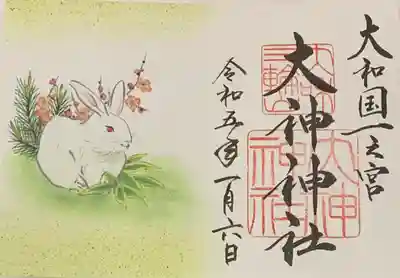 大和国一之宮
三輪
大神神社
大神神社
令和五年一月六日